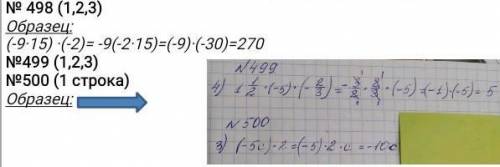 № 498 (1,2,3)
Образец:
(-9·15) ·(-2)= -9(-2·15)=(-9)·(-30)=270
№499 (1,2,3)
№500 (1 строка)
Образец:
№499
4) 1 1/2 · (-5) · (- 2/3) = - 3/2 · 2/3 · (-5) = (-1)·(-5) = 5
№500
3) (-5c)·2 = (-5)·2·c = -10c